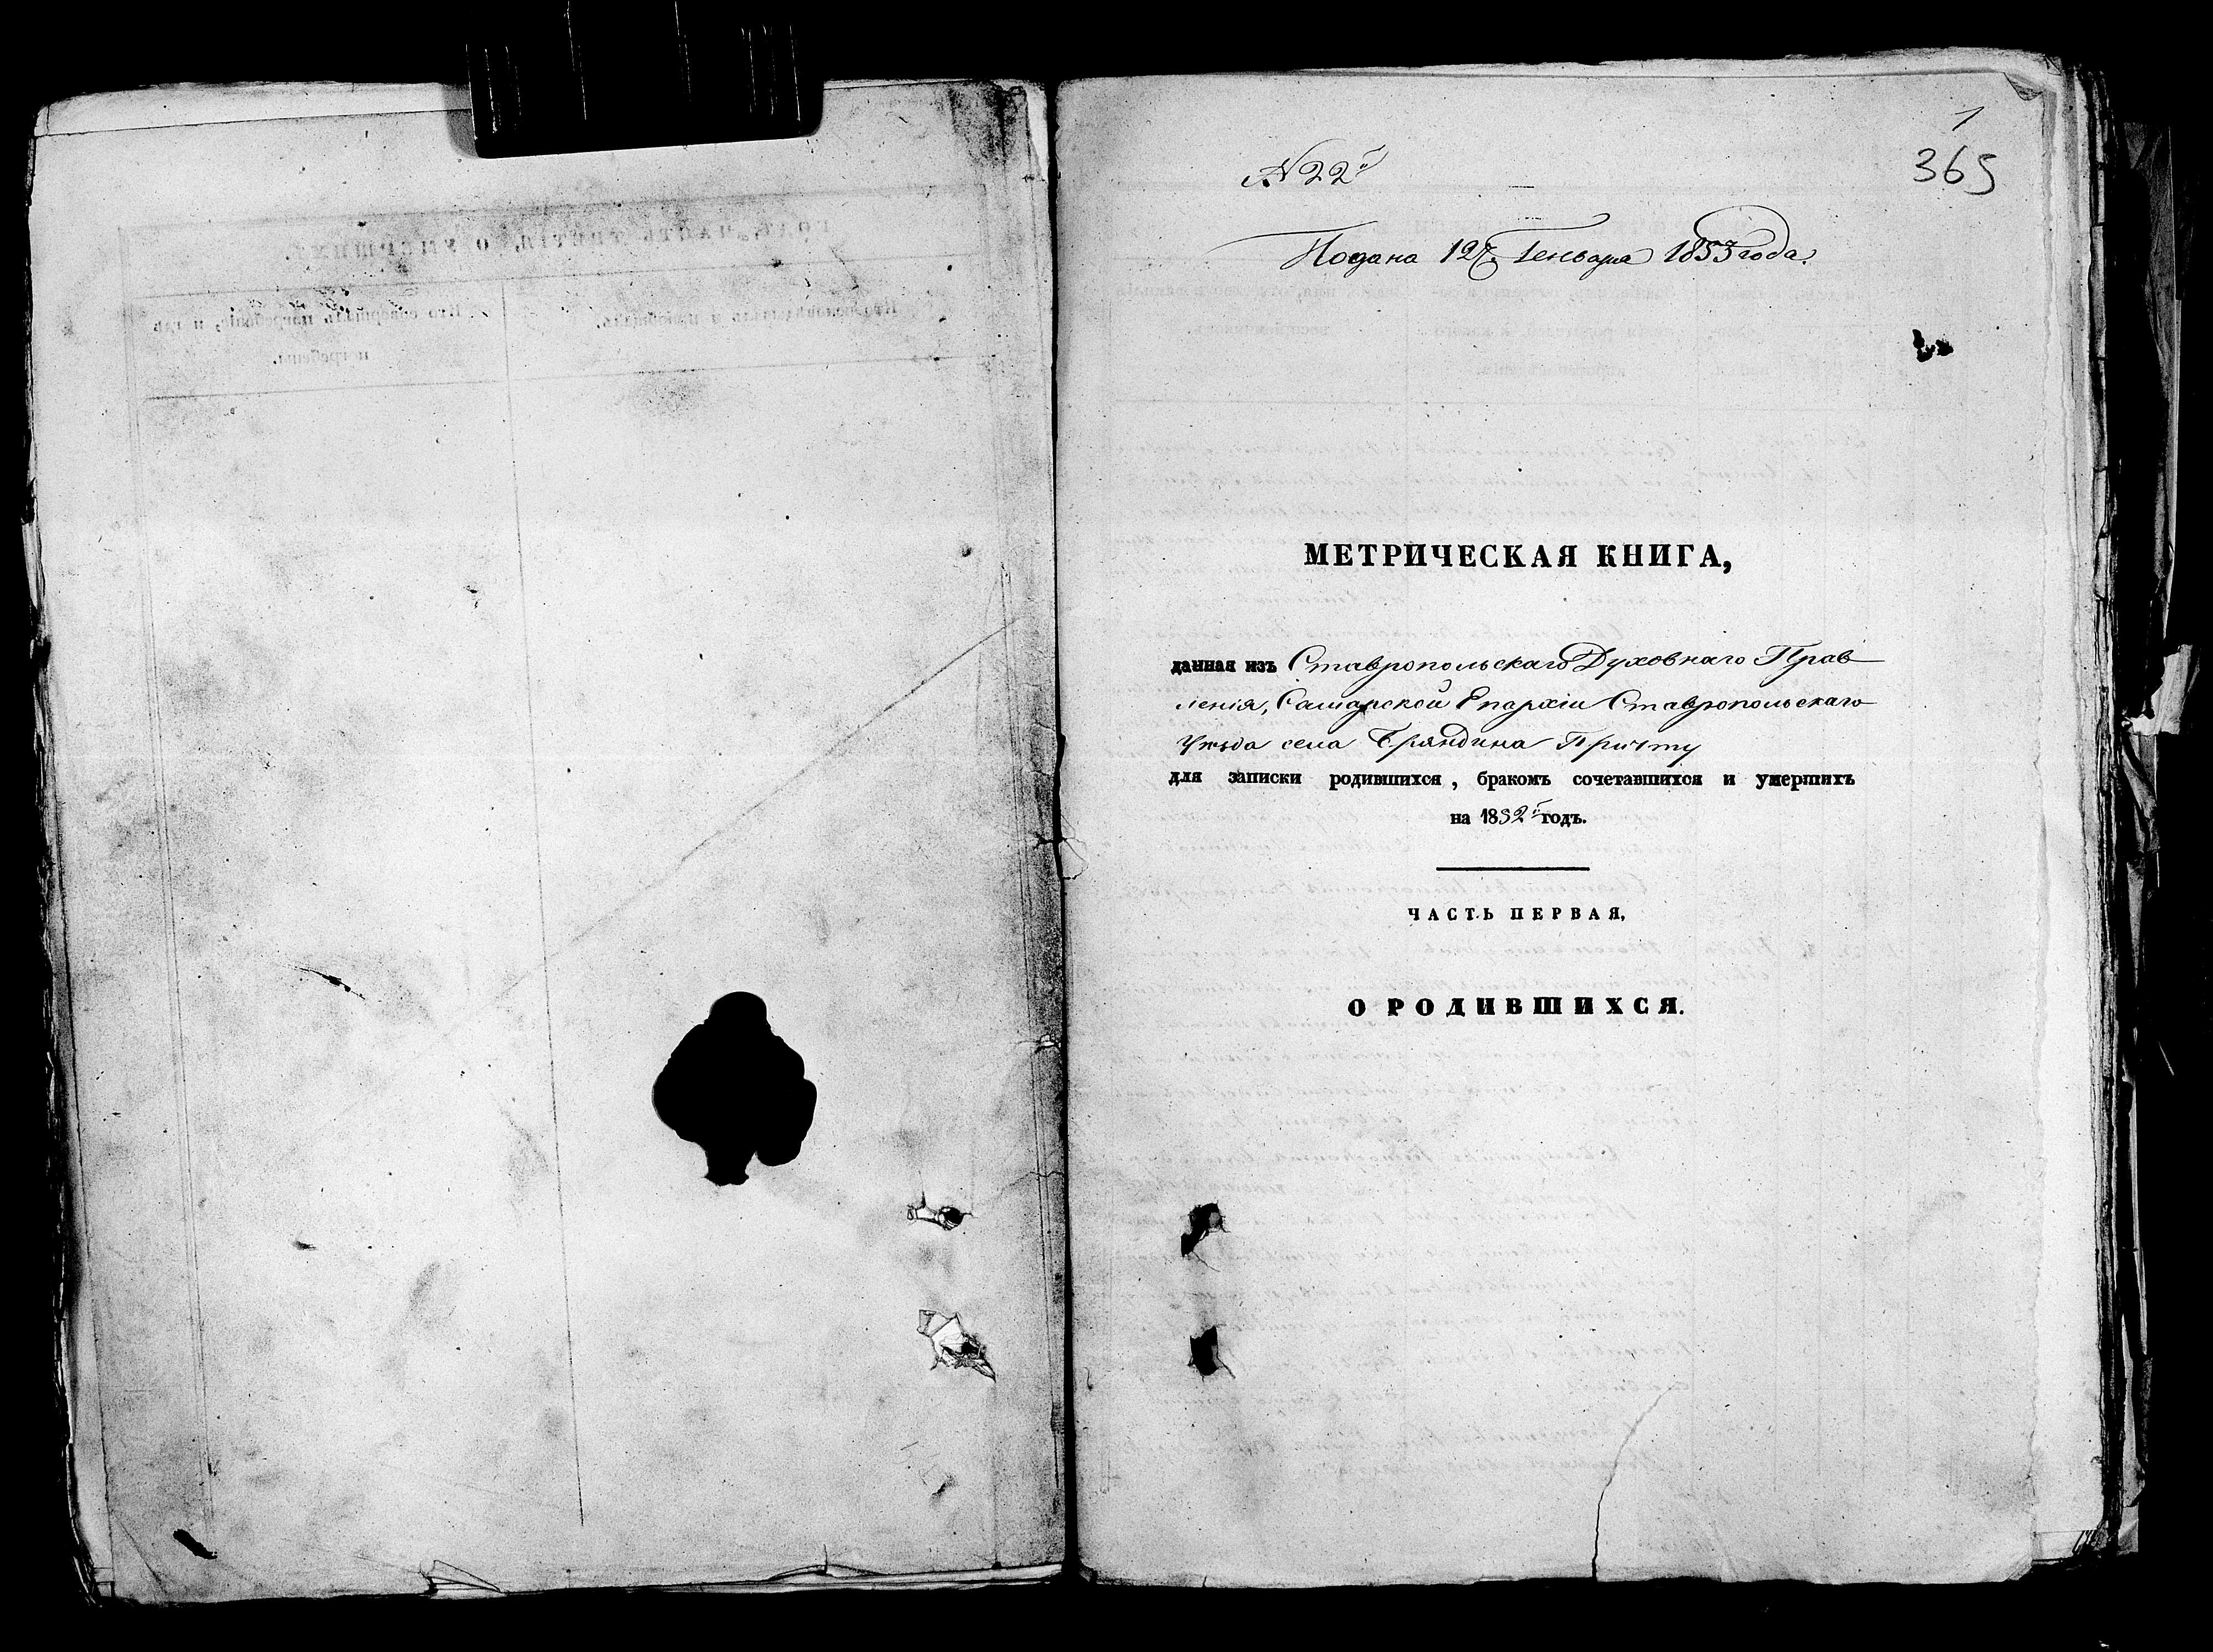 1
365
№ 22й
Подана 12г. Генваря 1853 года.
МЕТРИЧЕСКАЯ КНИГА,
данная изъ Ставропольскаго Духовнаго Прав
ленія, Самарской Епархіи Ставропольскаго
Уѣзда села Бряндина Причту
для записки родившихся, бракомъ сочетавшихся и умершихъ
на 1852й годъ.
ЧАСТЬ ПЕРВАЯ,
О РОДИВШИХСЯ.